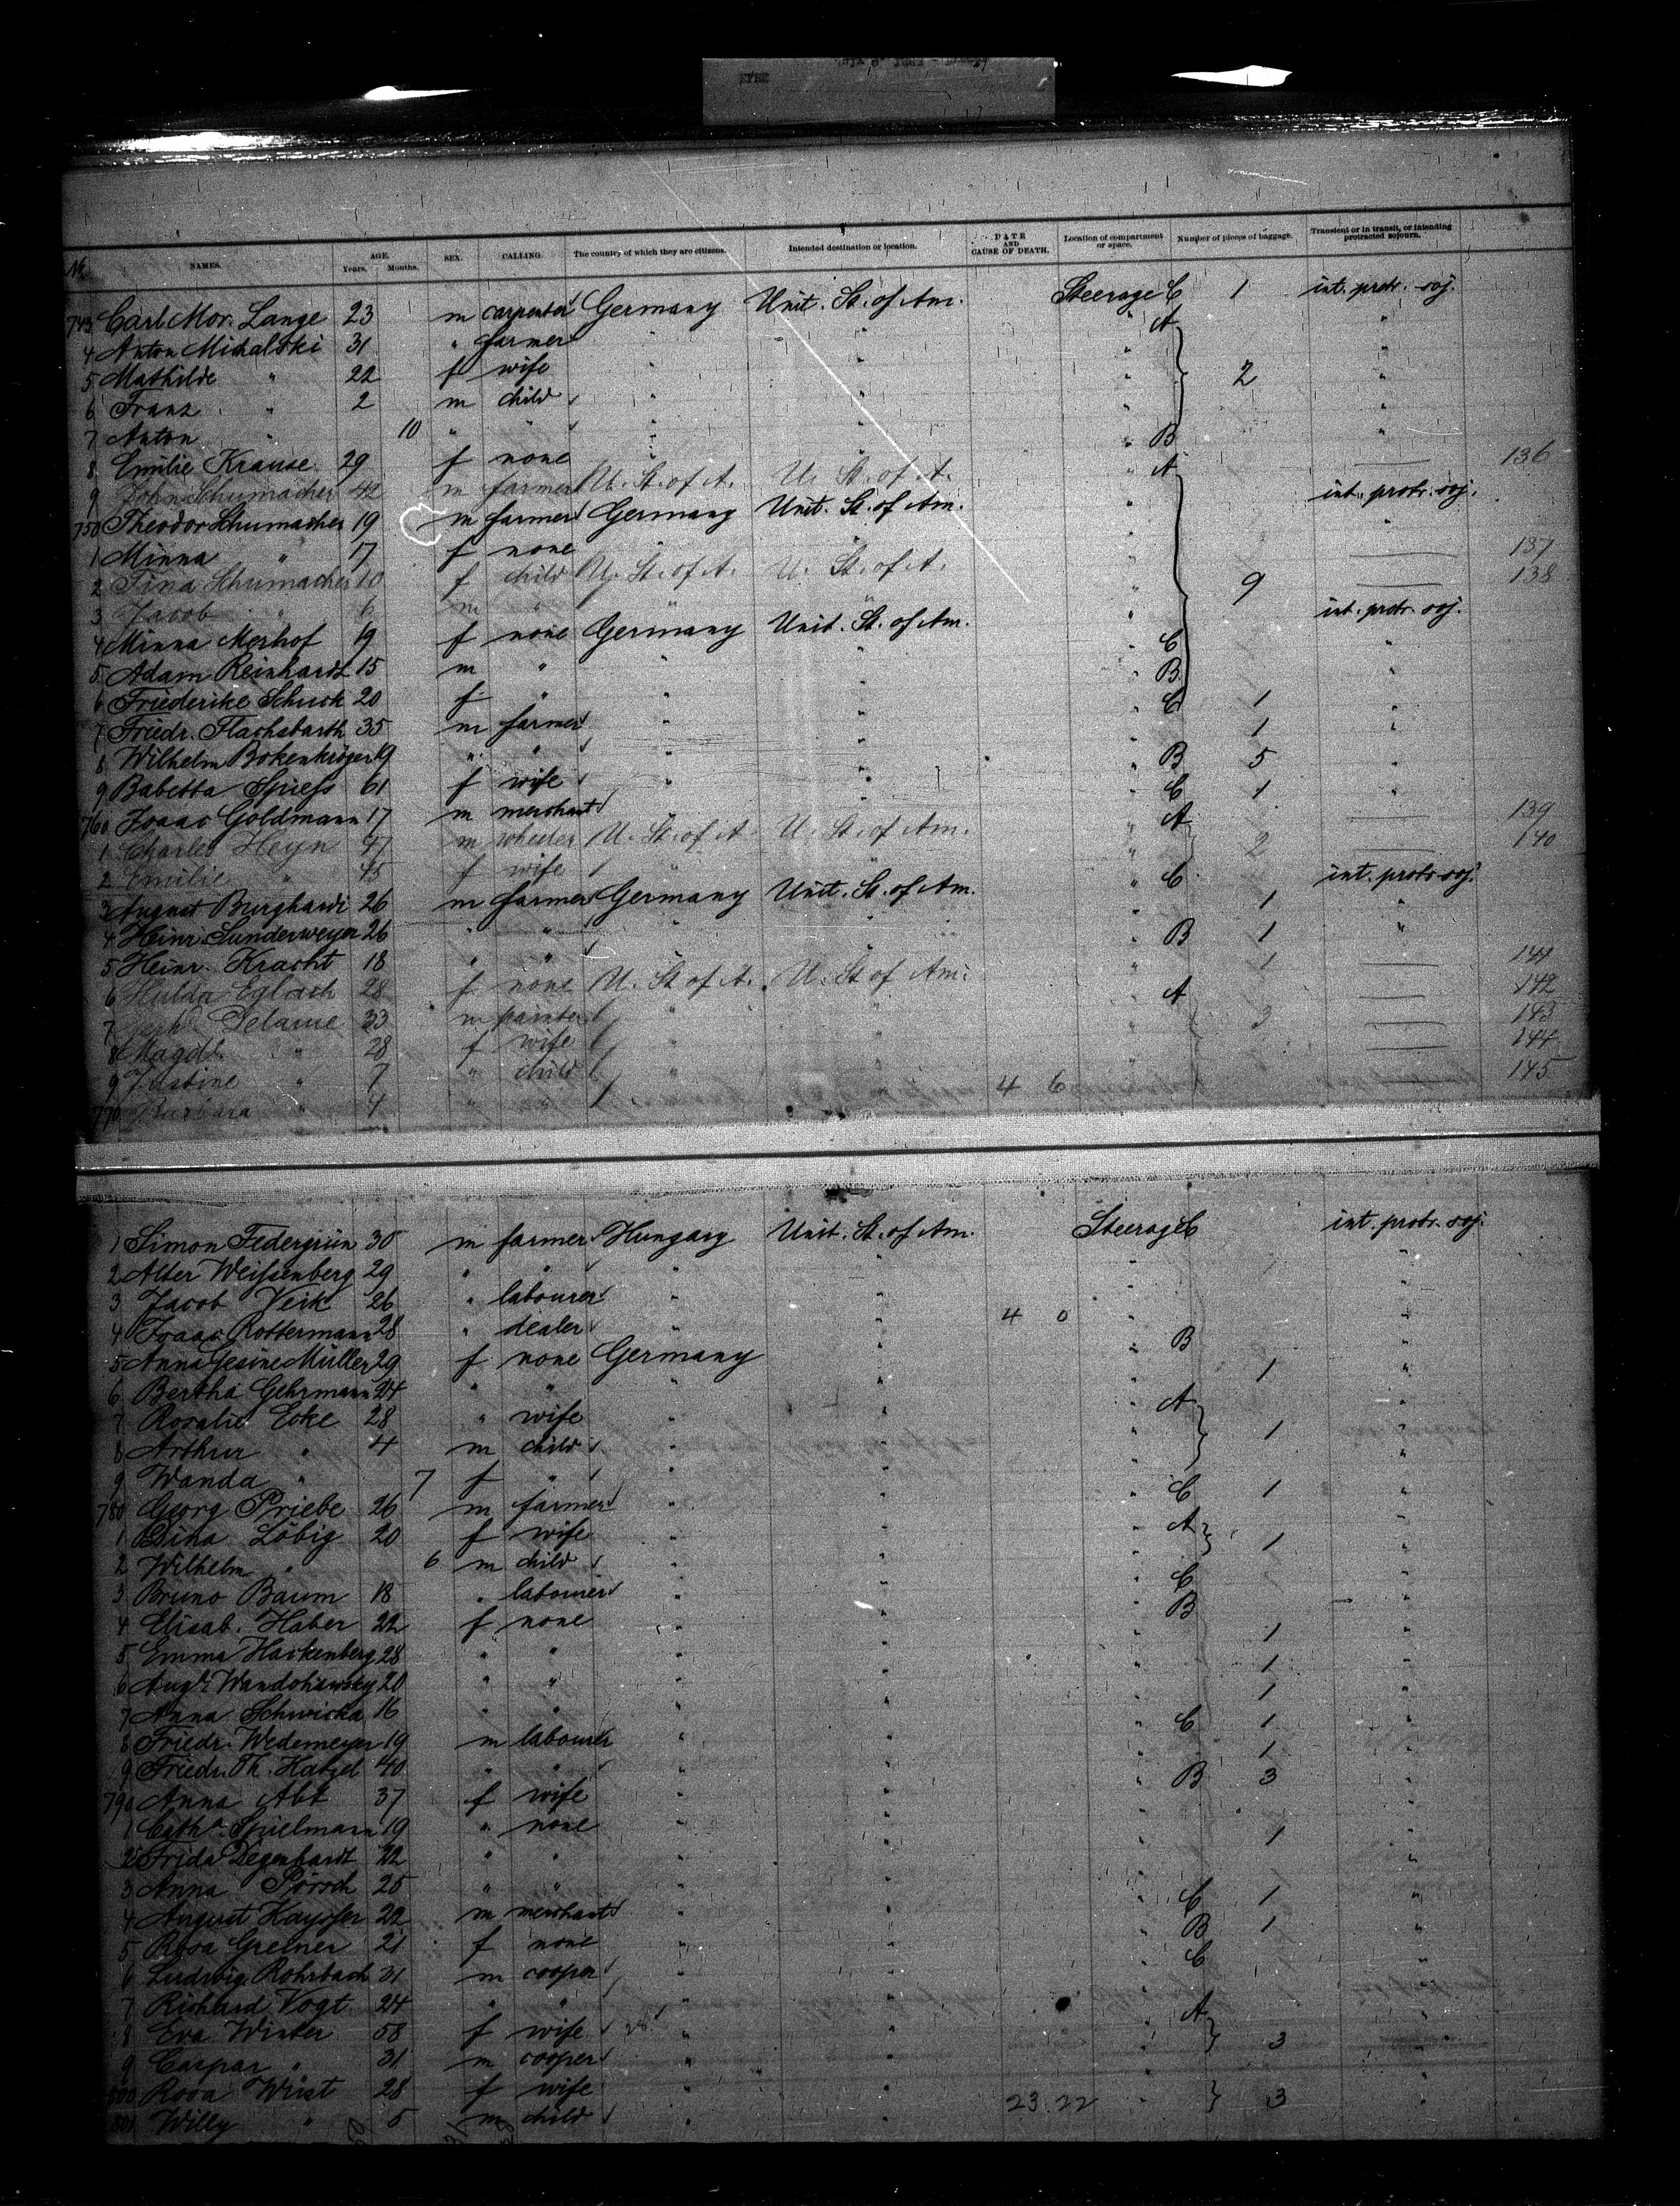 No. NAMES. AGE. Years. Months. SEX. CALLING. The country of which they are citizens. Intended destination or location. DATE AND CAUSE OF DEATH. Location of compartment or space. Number of pieces of baggage. Transient or in transit, or intending protracted sojourn.
743 Carl Mor. Lange 23 m carpenter Germany Unit. St. of Am. Steerage C 1 int. protr. soj.
4 Anton Michalski 31 " farmer " " " A "
5 Mathilde " 22 f wife " " " 2 "
6 Franz " 2 m child " " " "
7 Anton " 10 " " " " " "
8 Emilie Krause 29 f none " " " B "
9 John Schumacher 42 m farmer U. St. of A. U. St. of A. " A 136
750 Theodor Schumacher 19 m farmer Germany Unit. St. of Am. " int. protr. soj.
1 Minna " 17 f none " " " "
2 Tina Schumacher 10 f child U. St. of A. U. St. of A. " 137
3 Jacob " 6 m " " " " 9 138
4 Minna Merhof 19 f none Germany Unit. St. of Am. " int. protr. soj.
5 Adam Reinhardt 15 m " " " " C "
6 Friederike Schuck 20 f " " " " B "
7 Friedr. Flachsbarth 35 m farmer " " " C 1 "
8 Wilhelm Bokenkröger 19 " " " " " 1 "
9 Babetta Spiess 61 f wife " " " B 5 "
760 Isaac Goldmann 17 m merchant " " " C 1 "
1 Charles Heyn 47 m wheeler U. St. of A. U. St. of Am. " A 2 139
2 Emilie " 45 f wife " " " 140
3 August Burghardi 26 m farmer Germany Unit. St. of Am. " C 1 int. protr. soj.
4 Heinr. Sunderweyer 26 " " " " " 1 "
5 Heinr. Kracht 18 " " " " " B 1 "
6 Hulda Eglach 28 f none U. St. of A. U. St. of Am. " 1 141
7 Delarue 33 m painter " " " A 3 142
8 Magdl. " 28 f wife " " " 143
9 Justine " 7 " child " " " 144
770 Barbara " 4 " " 4 6 145
1 Simon Federgrün 30 m farmer Hungary Unit. St. of Am. Steerage C int. protr. soj.
2 Alter Weissenberg 29 " " " " " "
3 Jacob Veik 26 " labourer " " " "
4 Isaac Rottermann 28 " dealer " " 4 0 " "
5 Anna Gesine Müller 29 f none Germany " " B "
6 Bertha Gehrmann 24 " " " " " 1 "
7 Rosalie Ecke 28 " wife " " " A "
8 Arthur " 4 m child " " " 1 "
9 Wanda " 7 f " " " " "
780 Georg Priebe 26 m farmer " " " C 1 "
1 Dina Löbig 20 f wife " " " A "
2 Wilhelm " 6 m child " " " 1 "
3 Bruno Baum 18 " labourer " " " C "
4 Elisab. Haber 22 f none " " " B "
5 Emma Hackenberg 28 " " " " " 1 "
6 20 " " " " " 1 "
7 Anna Schwicka 16 " " " " " 1 "
8 Friedr. Wedemeyer 19 m labourer " " " C 1 "
9 Friedr. Th. Hatzel 40 " " " " " 1 "
790 Anna Abt 37 f wife " " " B 3 "
1 Cath. Spielmann 19 " none " " " "
2 Frida Degenhardt 22 " " " " " 1 "
3 Anna 25 " " " " " "
4 August 22 m merchant " " " C 1 "
5 Rosa Grelner 21 f none " " " B 1 "
6 Ludwig Rohrbach 31 m cooper " " " C "
7 Richard Vogt 24 " " " " " "
8 Eva Winter 58 f wife " " " A "
9 Caspar " 31 m cooper " " " 3 "
800 Rosa Wüst 28 f wife " " " "
801 Willy " 5 m child " " 23 22 " 3 "